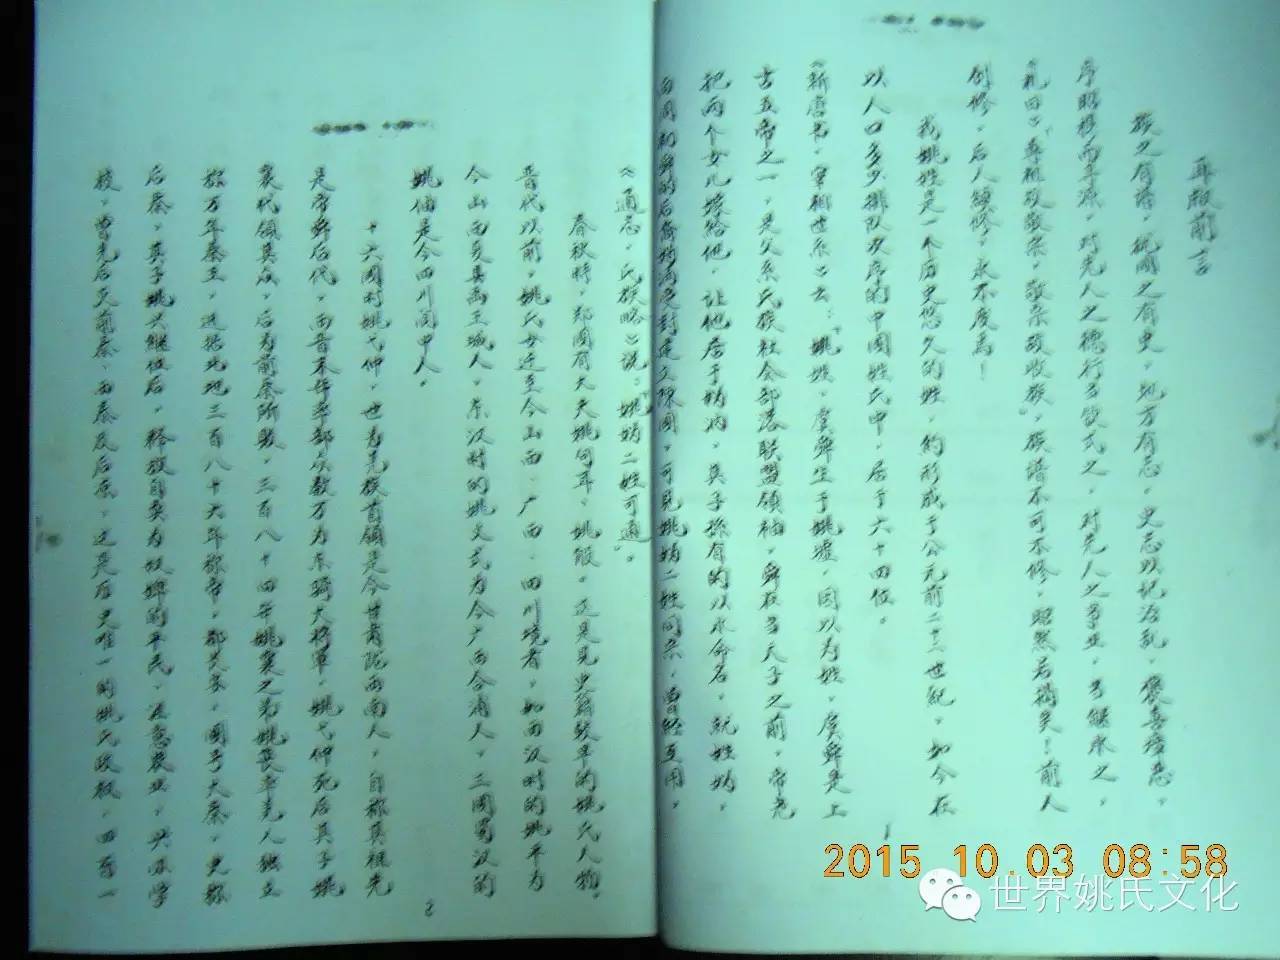 再版前言
族之有谱，犹国之有史，地方有志，史志以记治乱，褒善瘅恶，
序昭穆而年派，对先人之德行当敬式之，对先人之事业，当继承之，
《礼曰》：“尊祖故敬宗，敬宗故收族”，族谱不可不修，昭然若揭矣！前人
创修，后人续修，永不废焉！
我姚姓是一个历史悠久的姓，约形成于公元前二十二世纪，如今在
以人口多少排队次序的中国姓氏中，居于六十四位。
《新唐书，宰相世系》云：“姚姓，虞舜生于姚墟，因以为姓，虞舜是上
古五帝之一，是父系氏族社会部落联盟领袖，舜在当天子之前，帝尧
把两个女儿嫁给他，让他居于妫汭，其子孙有的以水命名，就姓妫，
西周初舜的后裔妫满受封建立陈国，可见姚妫二姓同宗，曾经互用，
《通志，氏族略》说：“姚妫二姓可通”。
春秋时，郑国有大夫姚句耳、姚般，这是见史籍较早的姚氏人物。
晋代以前，姚氏女迁至今山西、广西、四川境者，如西汉时的姚平为
今山西夏县禹王城人，东汉时的姚文式为今广西合浦人，三国蜀汉的
姚伷是今四川阆中人。
十六国时姚弋仲，世为羌族首领是今甘肃陇西南人，自称其祖先
是帝舜后代，西晋末年率部众数万为东骑大将军，姚弋仲死后其子姚
襄代领其众，后为前秦所败，三百八十四年姚襄之弟姚苌率羌人独立
称万年秦王，进据北地三百八十六年称帝，都长安，国号大秦，史称
后秦，其子姚兴继位后，释放自卖为奴婢的平民，注意农业，兴办学
校，曾先后灭前秦、西秦及后凉，这是历史唯一的姚氏政权，四百一
1
2
2015 10 03 08:58
世界姚氏文化